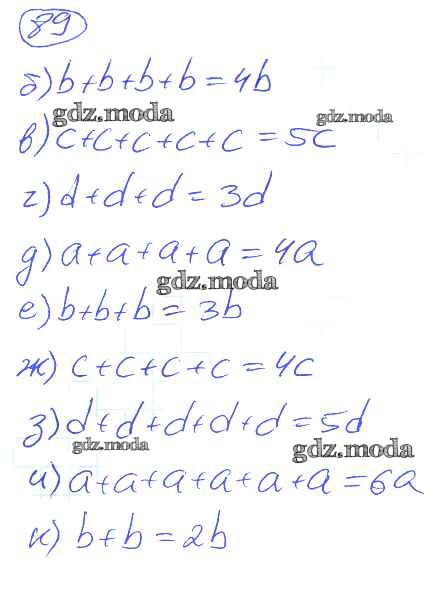 89
б) b+b+b+b=4b
gdz.moda
gdz.moda
в) c+c+c+c+c=5c
г) d+d+d=3d
д) a+a+a+a=4a
gdz.moda
е) b+b+b=3b
ж) c+c+c+c=4c
з) d+d+d+d+d=5d
gdz.moda
gdz.moda
и) a+a+a+a+a+a=6a
к) b+b=2b